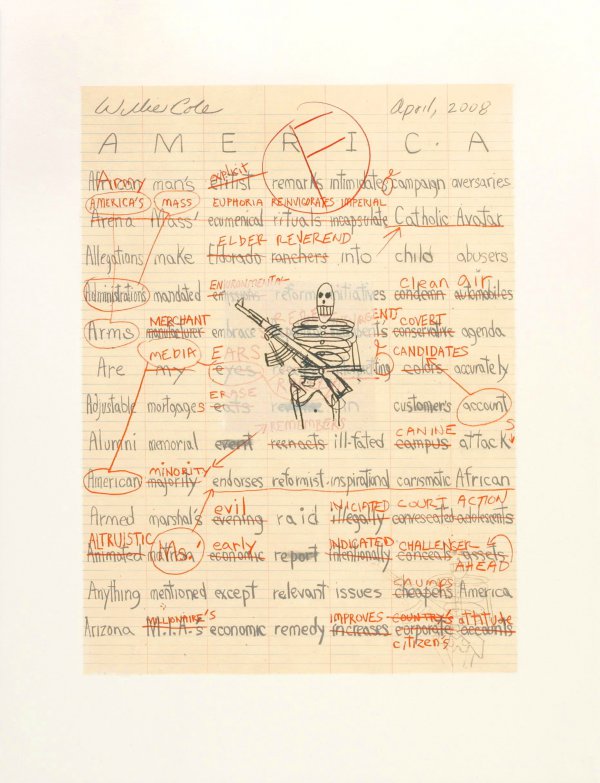 Willie Cole April, 2008
A M E R I C A
F
Army explicit
man's remarks intimidates campaign aversaries
AMERICA'S MASS EUPHORIA REINVIGORATES IMPERIAL
Arena Mass' ecumenical rituals incapsulate Catholic Avatar
ELDER REVEREND
Allegations make Eldorado ranchers into child abusers
ENVIRONMENTAL clean air
Administrations mandated reform initiatives condemn automobiles
MERCHANT AGENT COVERT
Arms manufacturer embrace conservative agenda
MEDIA EARS CANDIDATES
Are my eyes colors accurately
ERASE
Adjustable mortgages customer's account
REMEMBERS CANINE S
Alumni memorial event reenacts ill-fated campus attack
MINORITY
American majority endorses reformist inspirational carismatic African
evil INICIATED COURT ACTION
Armed marshal's evening raid illegally convescated adolescents
ALTRUISTIC MA' early INDICATED CHALLENGER
Animated economic report intentionally conceals assets
AHEAD
chumps
Anything mentioned except relevant issues cheapens America
MILLIONAIRE'S IMPROVES COUNTRY'S attitude
Arizona M.I.A.'s economic remedy increases corporate accounts
citizen's